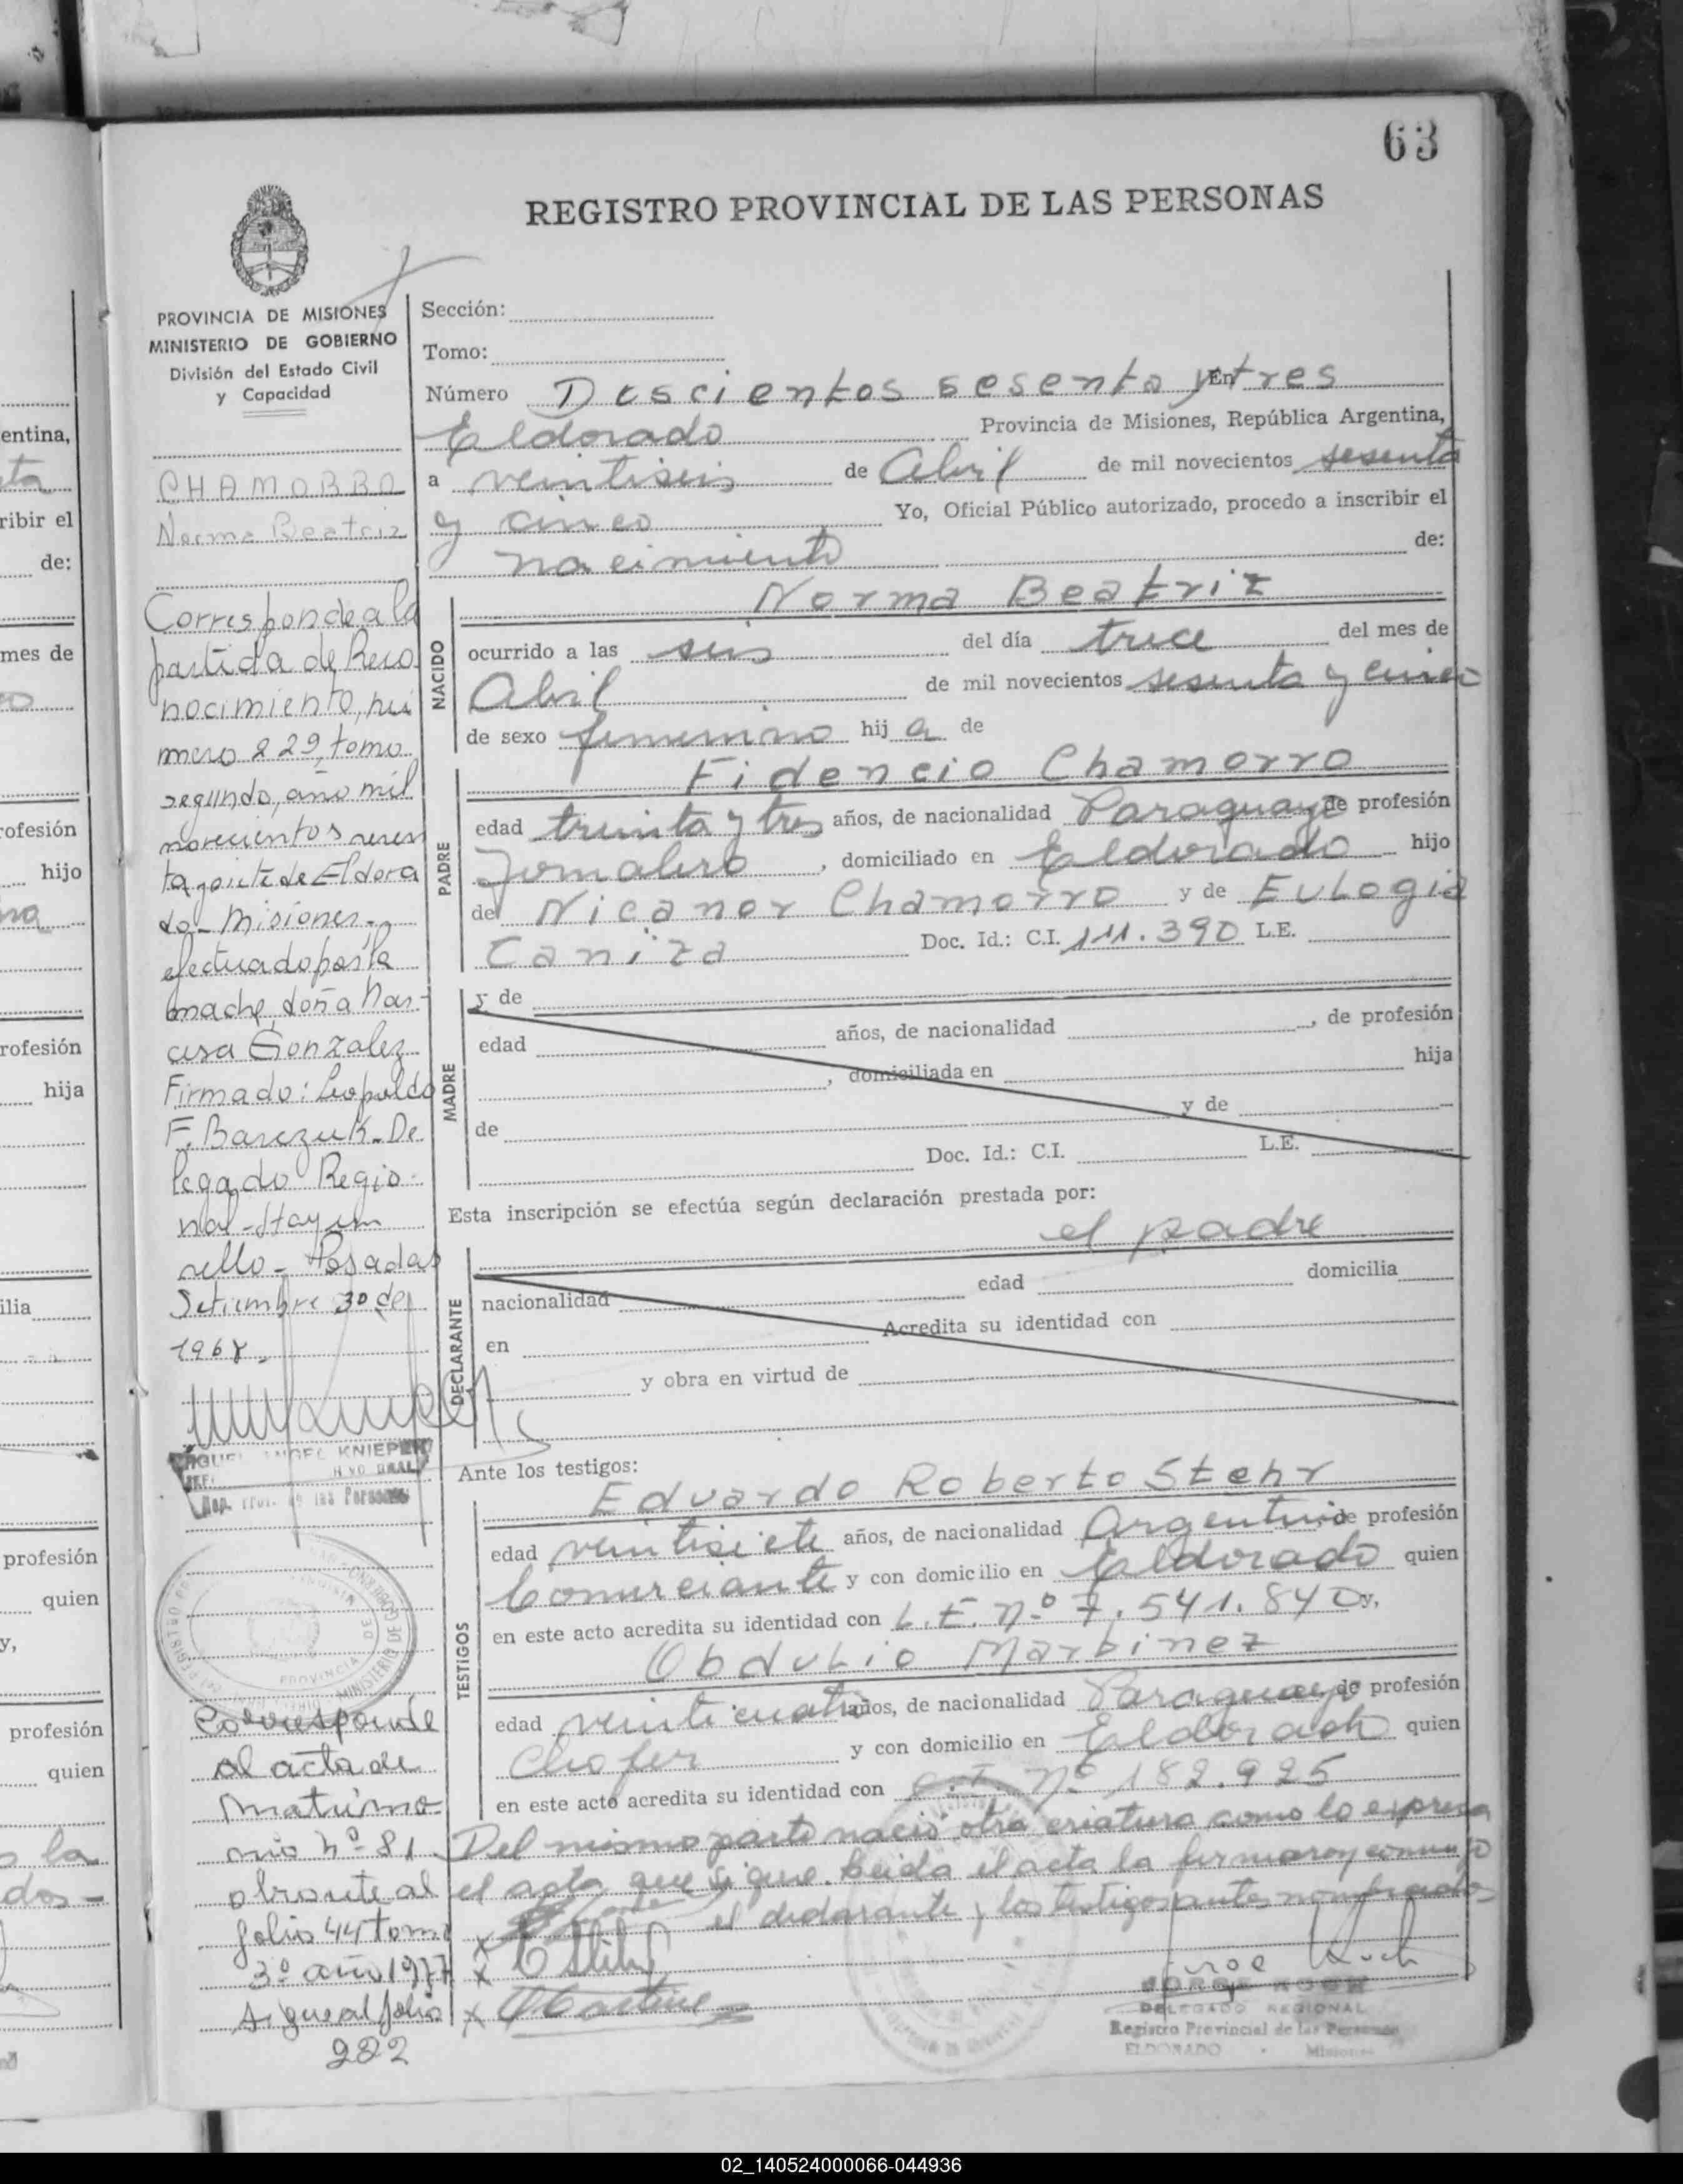 63
REGISTRO PROVINCIAL DE LAS PERSONAS
PROVINCIA DE MISIONES
MINISTERIO DE GOBIERNO
División del Estado Civil
y Capacidad
CHAMORRO
Norma Beatriz
Corresponde a la
partida de Reco
nocimiento, nú
mero 229, tomo
segundo, año mil
novecientos sesen
ta y siete de Eldora
do - Misiones -
efectuado por la
madre doña Nar-
cisa Gonzalez
Firmado: Leopoldo
F. Barczuk - De
legado Regio-
nal - Hay un
sello - Posadas
Setiembre 30 de
1968.
MIGUEL ANGEL KNIEPER
Rep. Prov. de las Personas
PROVINCIA
MINISTERIO DE
Corresponde
al acta de
matrimo-
nio nº 81
obrante al
folio 44 tomo
3º año 1977
sigue al folio
222
Sección:
Tomo:
Número Doscientos sesenta y tres En
Eldorado Provincia de Misiones, República Argentina,
a veintiseis de Abril de mil novecientos sesenta
y cinco Yo, Oficial Público autorizado, procedo a inscribir el
nacimiento de:
Norma Beatriz
NACIDO
ocurrido a las seis del día trece del mes de
Abril de mil novecientos sesenta y cinco
de sexo femenino hij a de
Fidencio Chamorro
PADRE
edad treinta y tres años, de nacionalidad Paraguayo de profesión
Jornalero, domiciliado en Eldorado hijo
de Nicanor Chamorro y de Eulogia
Caniza Doc. Id.: C.I. 111.390 L.E.
MADRE
y de
edad años, de nacionalidad , de profesión
, domiciliada en hija
de y de
Doc. Id.: C.I. L.E.
Esta inscripción se efectúa según declaración prestada por:
el padre
DECLARANTE
nacionalidad edad domicilia
en Acredita su identidad con
y obra en virtud de
Ante los testigos:
Eduardo Roberto Stehr
TESTIGOS
edad veintisiete años, de nacionalidad Argentino de profesión
Comerciante y con domicilio en Eldorado quien
en este acto acredita su identidad con L.E. nº 7.541.840 y,
Obdulio Martinez
edad veinticuatro años, de nacionalidad Paraguayo de profesión
Chofer y con domicilio en Eldorado quien
en este acto acredita su identidad con C.I. nº 182.925
Del mismo parto nació otra criatura como lo expresa
el acta que sigue. Leida el acta la firmaron conmigo
el declarante y los testigos antes nombrados
x
x
x
JORGE KOCH
DELEGADO REGIONAL
Registro Provincial de las Personas
ELDORADO - Misiones
entina,
ribir el
de:
mes de
rofesión
hijo
rofesión
hija
ilia
profesión
quien
y,
profesión
quien
la
dos-
02_140524000066-044936